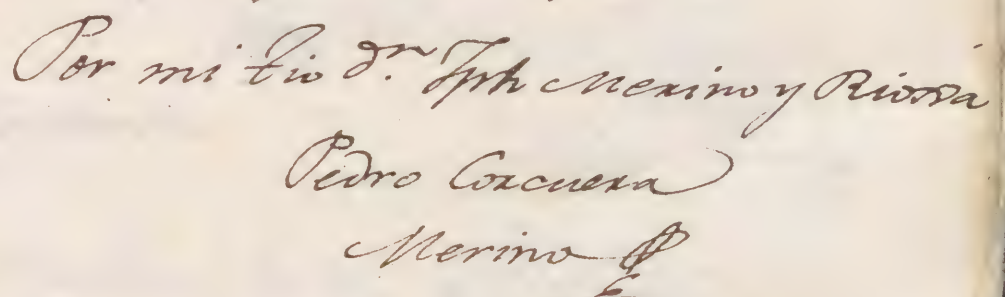 Por mi tio Dn. Jph Merino y Riorva
Pedro Corcuera
Merino